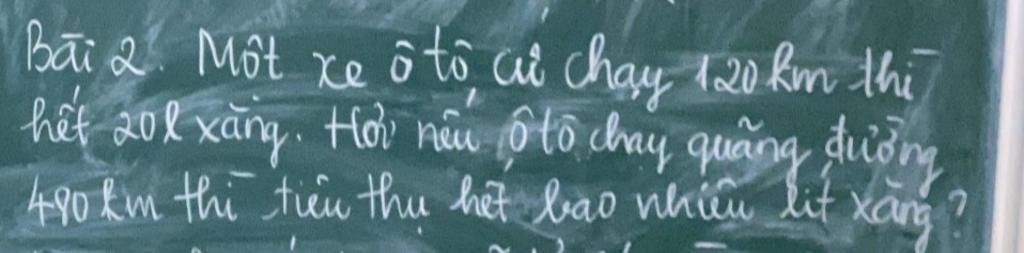 Bài 2. Một xe ô tô cứ chạy 120 km thì
hết 20l xăng. Hỏi nếu ô tô chạy quãng đường
490 km thì tiêu thụ hết bao nhiêu lít xăng?